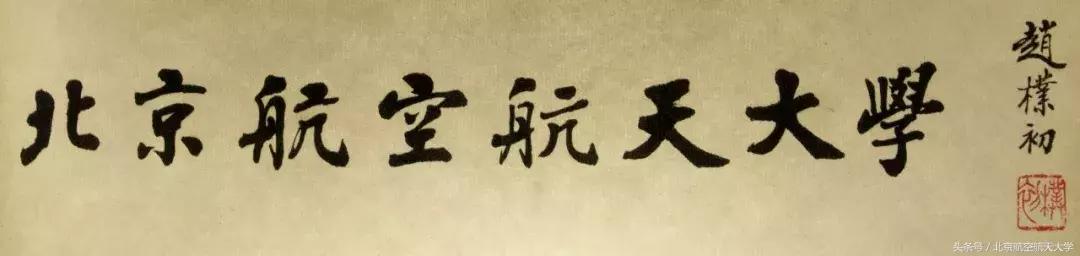 北京航空航天大學
趙樸初
樸初
头条号 / 北京航空航天大学